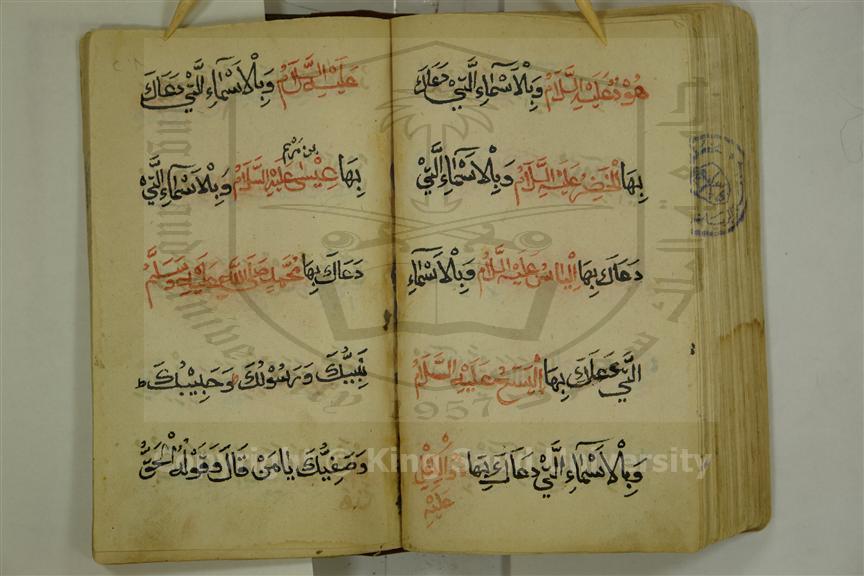 هُوْدُ عَلَيْهِ السَّلَامُ وَبِالْاَسْمَاءِ الَّتِيْ دَعَاكَ
بِهَا الْخَضِرُ عَلَيْهِ السَّلَامُ وَبِالْاَسْمَاءِ الَّتِيْ
دَعَاكَ بِهَا اِلْيَاسُ عَلَيْهِ السَّلَامُ وَبِالْاَسْمَاءِ
الَّتِيْ دَعَاكَ بِهَا الْيَسَعُ عَلَيْهِ السَّلَامُ
وَبِالْاَسْمَاءِ الَّتِيْ دَعَاكَ بِهَا ذُالْكِفْلِ
عَلَيْهِ
عَلَيْهِ السَّلَامُ وَبِالْاَسْمَاءِ الَّتِيْ دَعَاكَ
بن مريم
بِهَا عِيْسٰى عَلَيْهِ السَّلَامُ وَبِالْاَسْمَاءِ الَّتِيْ
دَعَاكَ بِهَا مُحَمَّد صَلَّى اللهُ عَلَيْهِ وَسَلَّمَ
نَبِيُّكَ وَرَسُوْلُكَ وَحَبِيْبُكَ
وَصَفِيُّكَ يَا مَنْ قَالَ وَقَوْلُهُ الْحَقُّ
Copyright © King Saud University
1957